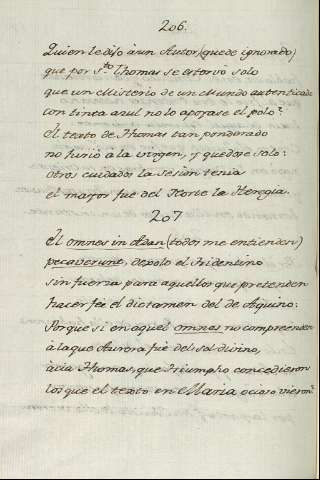 206.
Quien le dijo à un Autor (quede ignorado)
que por S.to Thomas se estorvò solo
que un Misterio de un Mundo autenticado
con linea azul no lo apoyase el polo?
El texto de Thomas tan ponderado
no huriò a la virgen, y quedose solo:
otros cuidados la Sesion tenia
el mayor fue del Norte la Heregia.
207
El omnes in Adan (todos me entienden)
pecaverunt, dejolo el Tridentino
sin fuerza para aquellos que pretenden
hacer feé el dictamen del de Aquino:
Porque si en aquel omnes no comprenden
à la que Aurora fuè del sol divino,
à via Thomas, que Triumpho concedieron
los que el texto en Maria ocioso vieron?